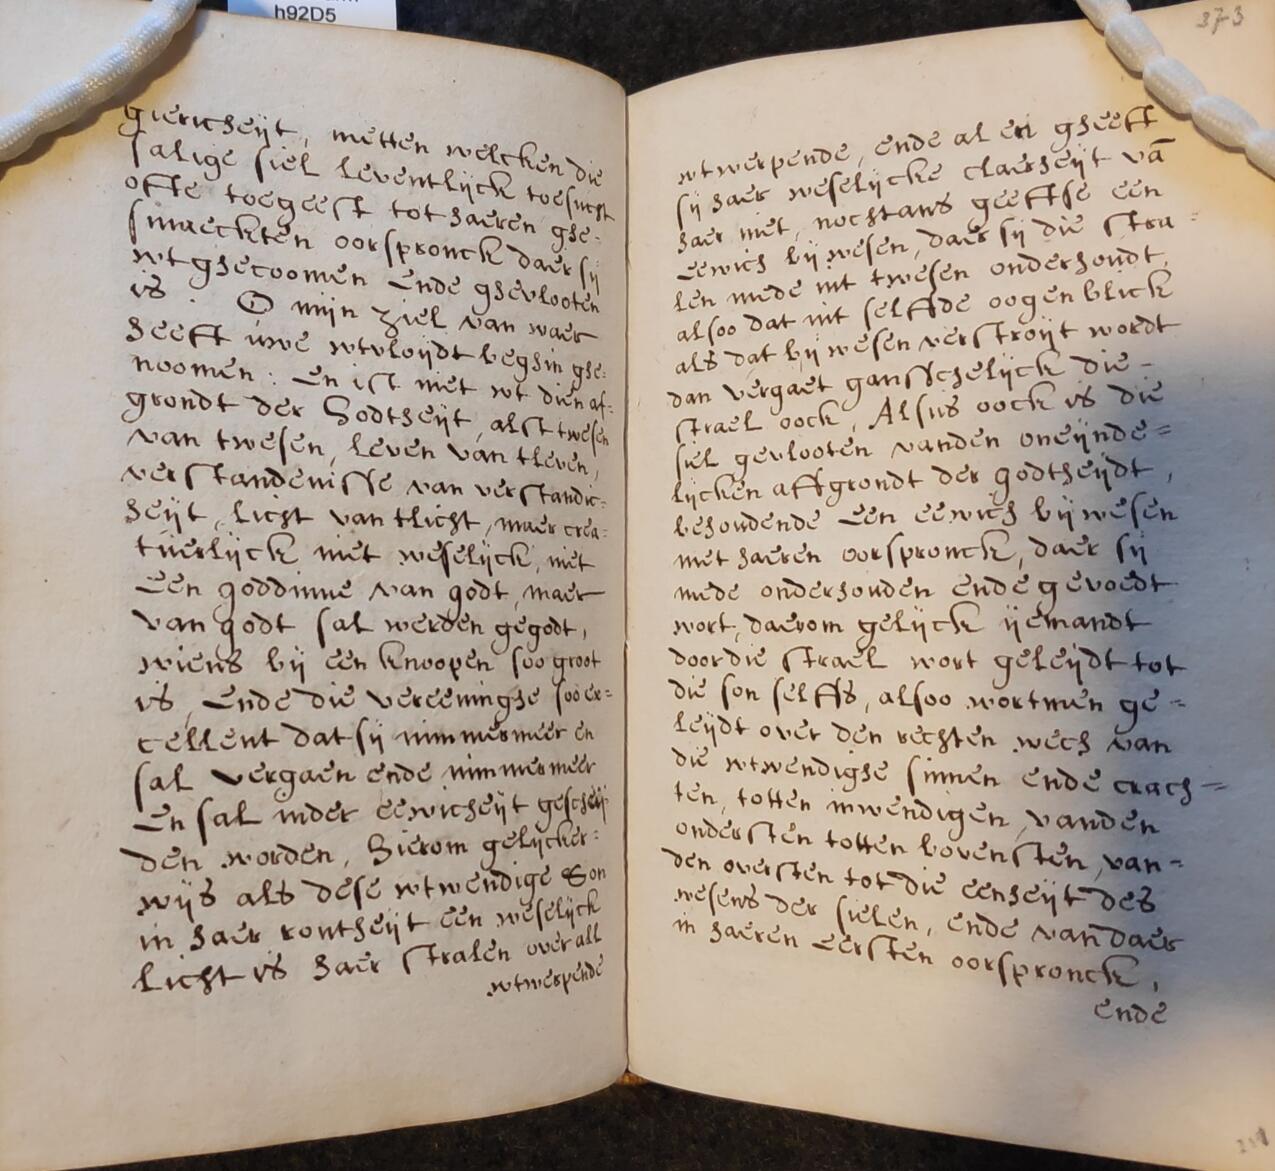 h92D5
giericheijt, metten welcken die
salige siel leventlijck toesucht
ofte toegeest tot haeren ghe-
smaeckten oorspronck daer sij
wtghecoomen ende ghevlooten
is. O mijn ziel van waer
heeft uwe wtvloijdt beghin ghe:
noomen: En ist niet wt dien af-
grondt der Godtheijt, alst twesen
van twesen, leven van tleven,
verstandenisse van verstandic-
heijt, licht van tlicht, maer crea-
tuerlijck niet weselijck, niet
een goddinne van godt, maer
van godt sal werden gegodt,
wiens bij een knoopen soo groot
is, ende die vereeninghe soo ex=
cellent dat sij nimmermeer en
sal vergaen ende nimmermeer
en sal inder eewicheijt gescheij-
den worden, hierom gelijcker-
wijs als dese wtwendige Son
in haer rontheijt een weselijck
licht is haer stralen over all
wtwerpende
373
wtwerpende, ende al en gheeft
sij haer weselijcke claerheijt vā
haer niet, nochtans geeftse een
eewich bijwesen, daer sij die stra-
len mede int twesen onderhondt,
alsoo dat int selffde oogenblick
als dat bijwesen verstroijt wordt
dan vergaet ganschelijck die-
strael oock, Alsus oock is die
siel gevlooten vanden oneijnde=
lijcken aftgrondt der godtheijdt,
behoudende een eewich bijwesen
met haeren oorspronck, daer sij
mede onderhouden ende gevoedt
wort, daerom gelijck ijemandt
door die strael wort geleijdt tot
die son selffs, alsoo wortmen ge=
leijdt over den rechten wech van
die wtwendighe sinnen ende crach=
ten, totten inwendigen, vanden
ondersten totten bovensten, van-
den oversten tot die eenheijt des
wesens der sielen, ende van daer
in haeren eersten oorspronck,
ende